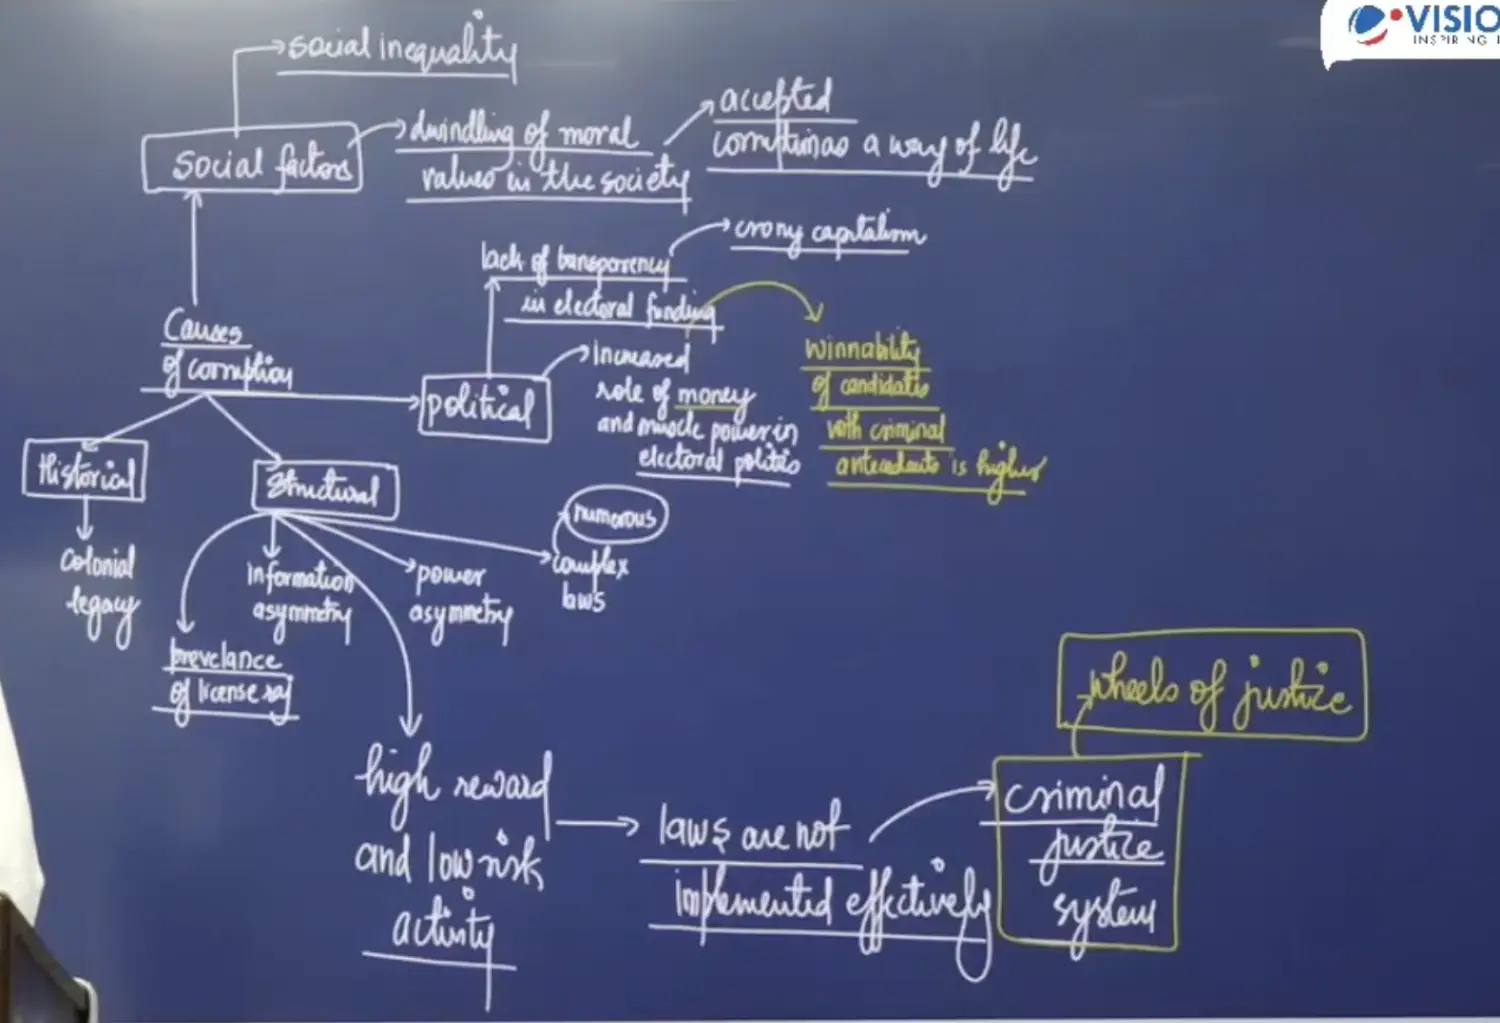 VISIO
INSPIRING I
social inequality
social factors
dwindling of moral
values in the society
accepted
corruption as a way of life
Causes
of corruption
lack of transparency
in electoral funding
crony capitalism
political
increased
role of money
and muscle power in
electoral politics
winnability
of candidates
with criminal
antecedents is higher
Historical
colonial
legacy
structural
prevelance
of license raj
information
asymmetry
power
asymmetry
numerous
complex
laws
high reward
and low risk
activity
laws are not
implemented effectively
criminal
justice
system
wheels of justice